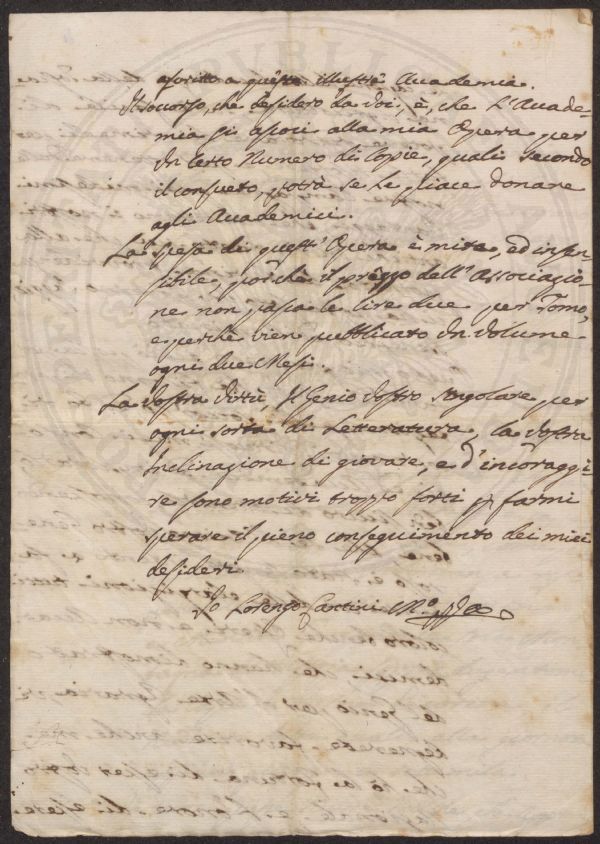 ascritto a questa illustre Accademia.
Il soccorso, che desidero da voi, è, che L'Accade-
mia si associ alla mia Opera per
un certo Numero di Copie, quali secondo
il consueto, potrà se le piace donare
agli Accademici.
La spesa di quest'Opera è mite, ed insen-
sibile, poichè il prezzo dell'Associazio-
ne non passa le lire due per Tomo,
e perchè vien pubblicato un volume
ogni due Mesi.
La vostra virtù, Il Genio vostro singolare per
ogni sorta di Letteratura, la vostra
Inclinazione di giovare, e d'incoraggi-
re sono motivi troppo forti p farmi
sperare il pieno conseguimento dei miei
desideri
Io Lorenzo Cantini